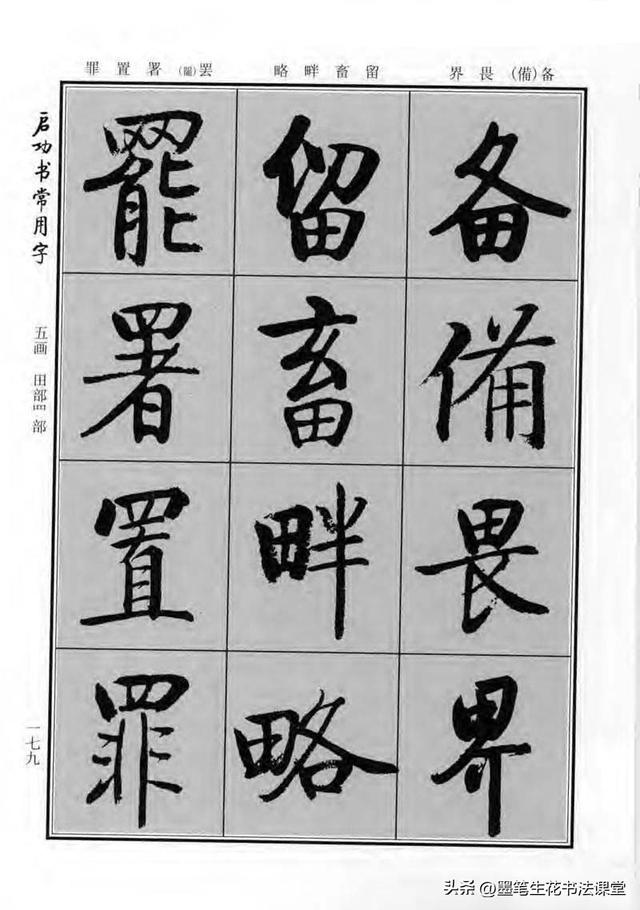 备(備)畏界
留畜畔略
罢(罷)署置罪
备
備
畏
界
留
畜
畔
略
罷
署
置
罪
启功书常用字
五画 田部罒部
一七九
头条 @墨笔生花书法课堂